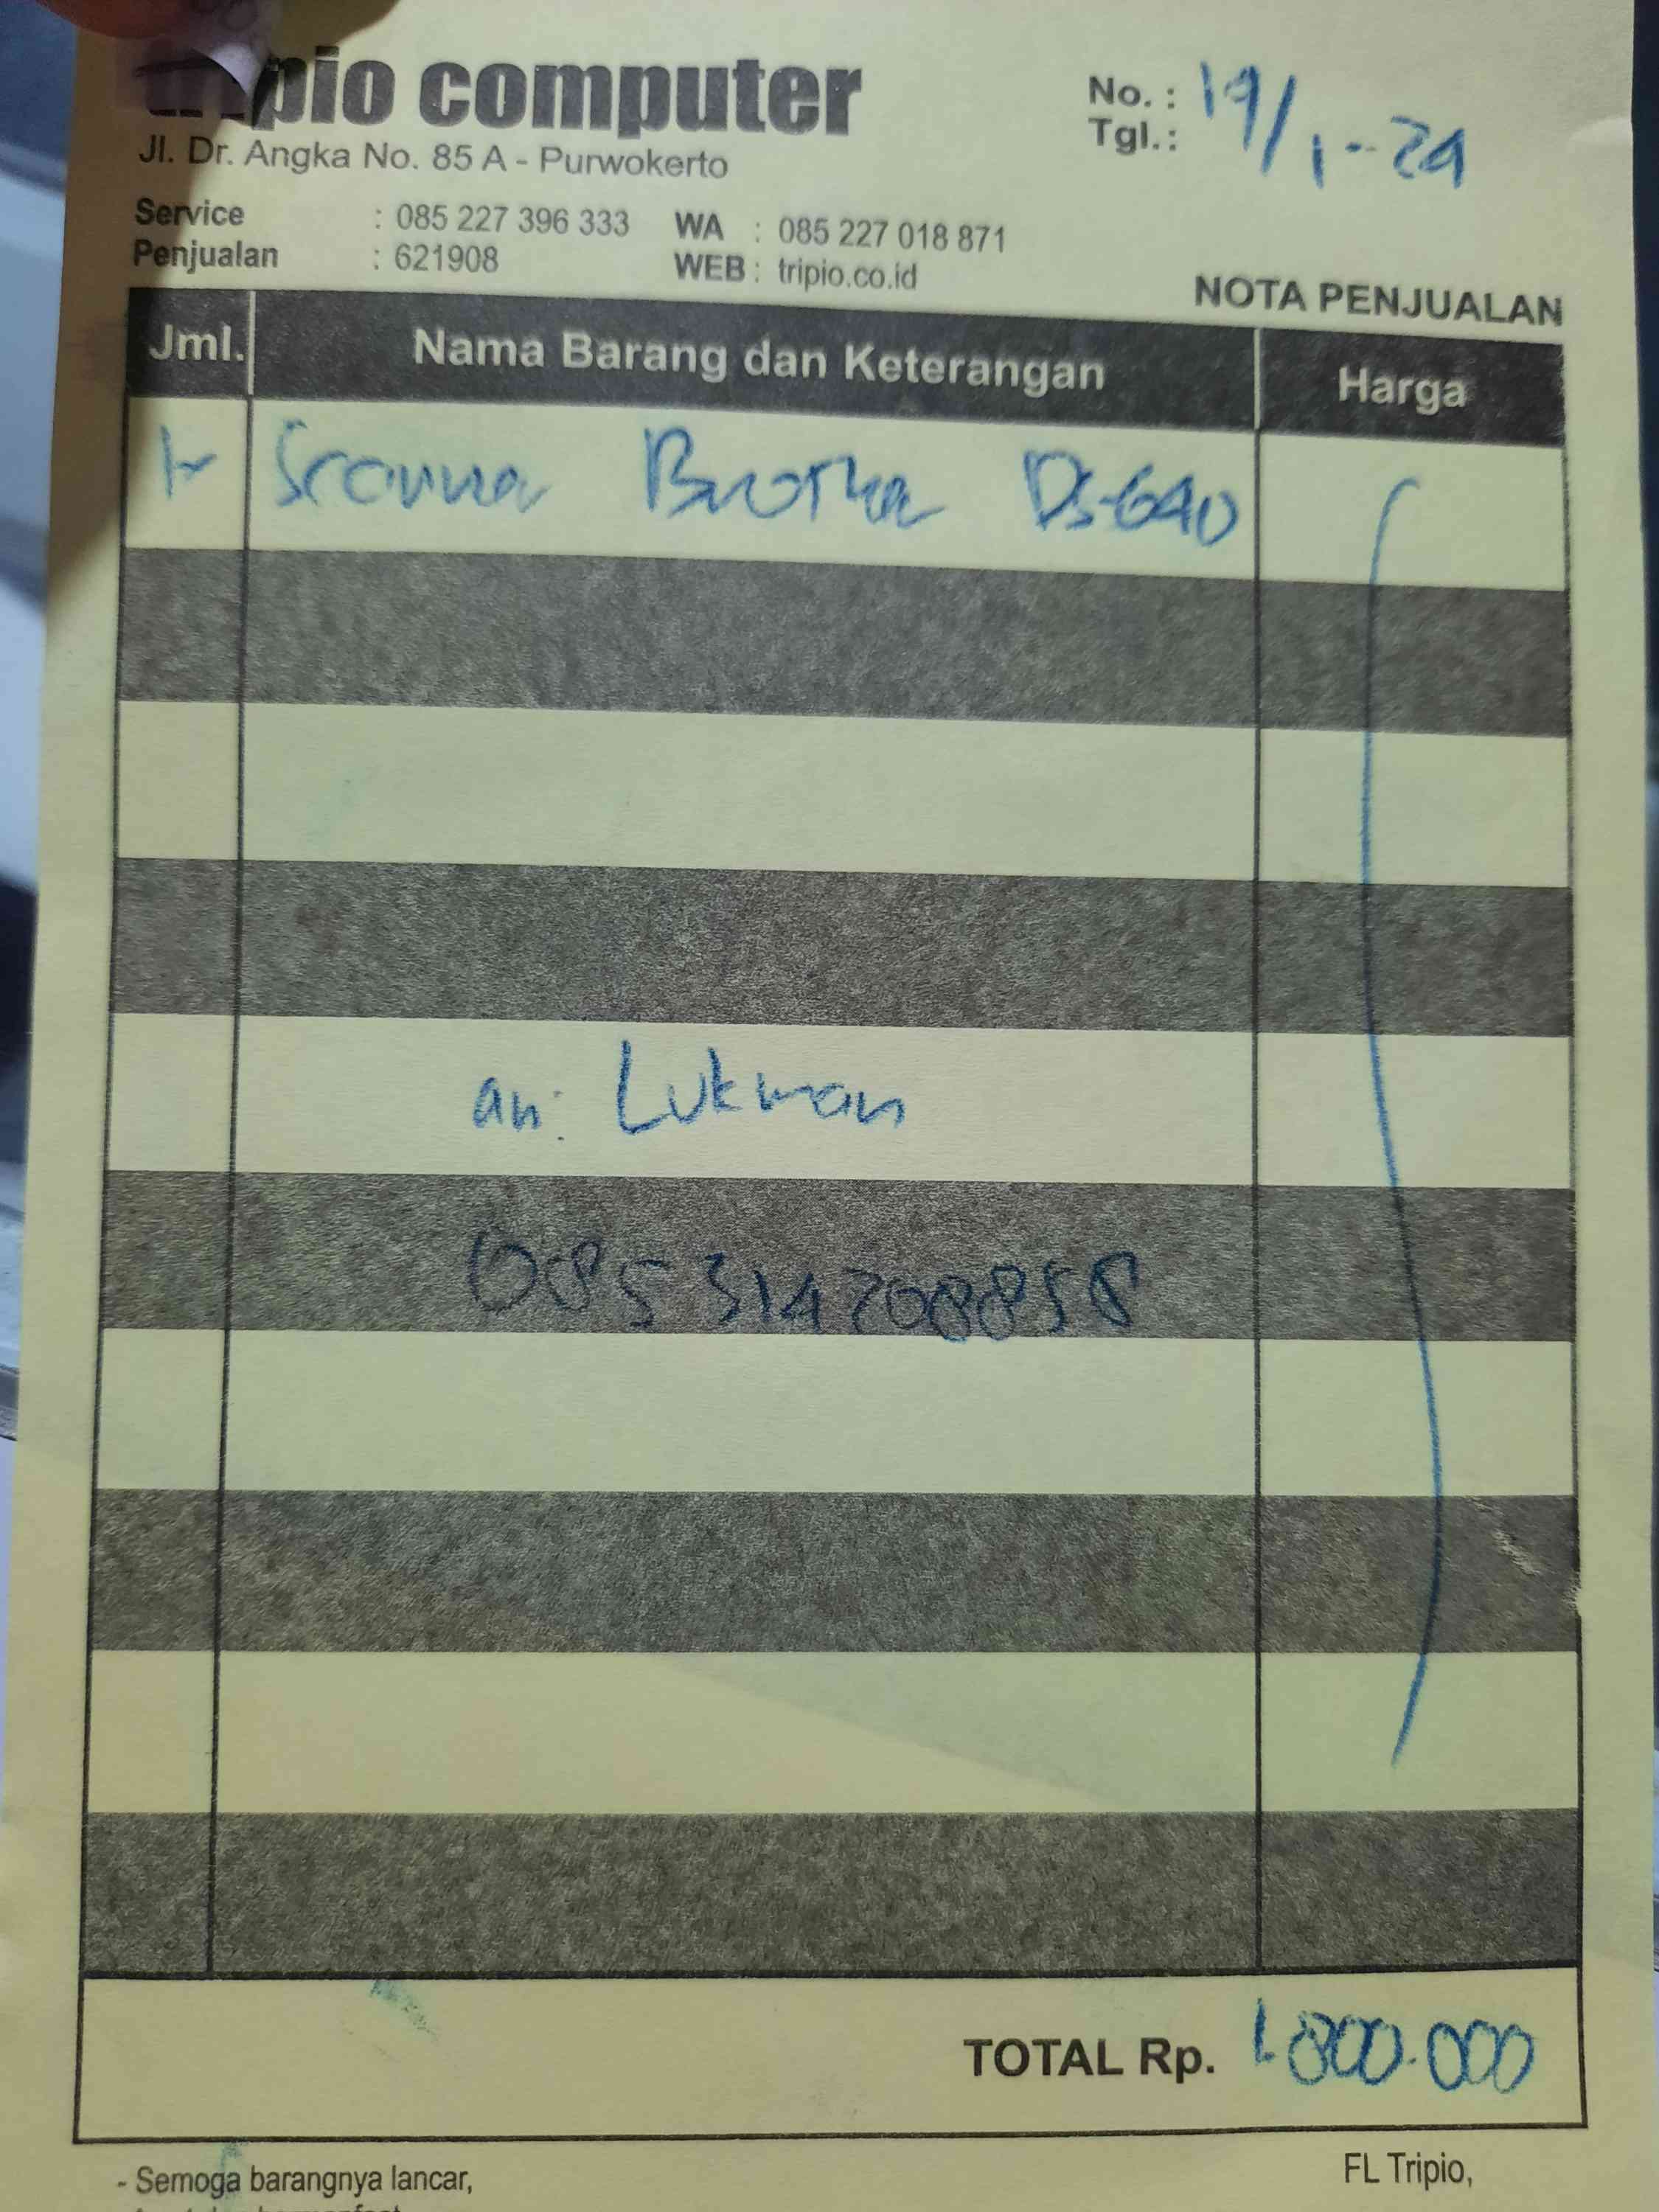 tripio computer
Jl. Dr. Angka No. 85 A - Purwokerto
No. :
Tgl.: 19/1-24
Service : 085 227 396 333 WA : 085 227 018 871
Penjualan : 621908 WEB : tripio.co.id
NOTA PENJUALAN
Jml. Nama Barang dan Keterangan Harga
1 Scanner Brother Ds-640
an: Lukman
085314208858
TOTAL Rp. 1.800.000
- Semoga barangnya lancar,
FL Tripio,